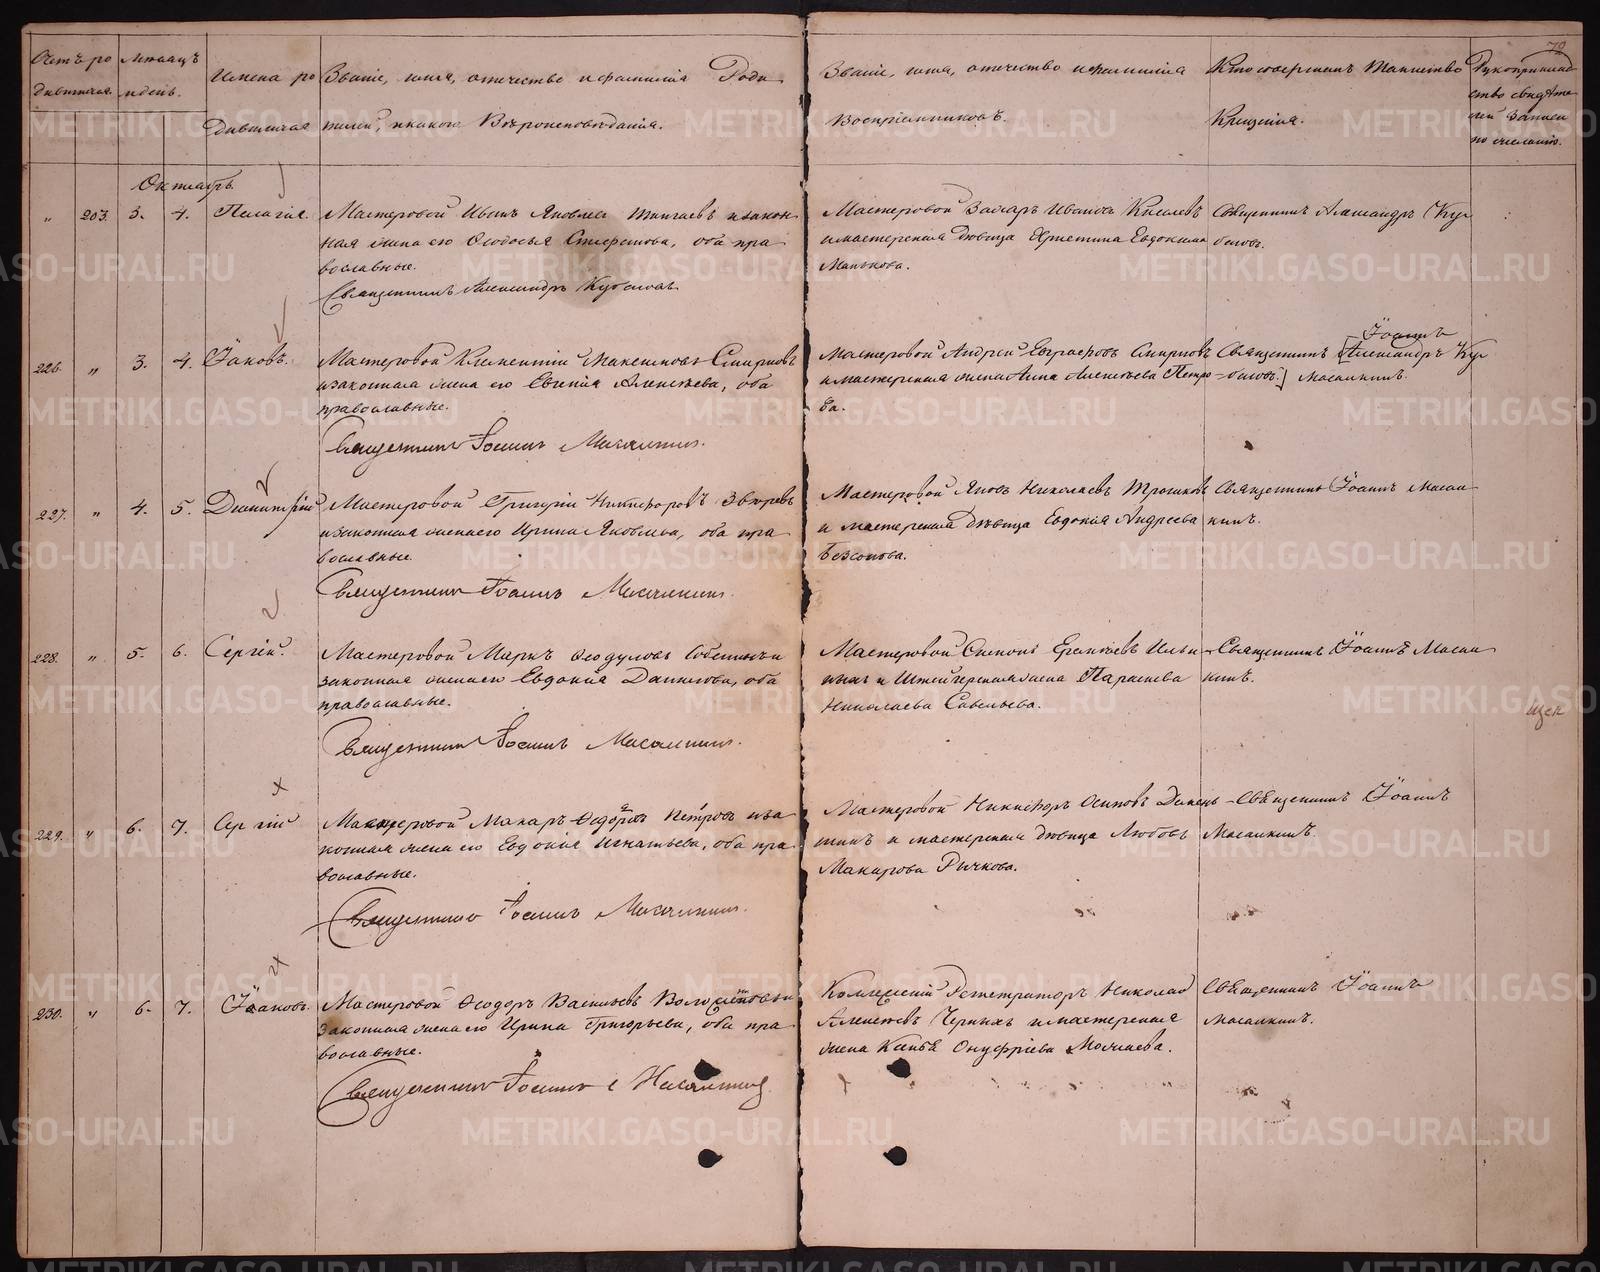 72
Счетъ ро
дившихся.
Мѣсяцъ
и день.
Имена ро
дившихся
Званіе, имя, отчество и фамилія Роди
телей, и какого Вѣроисповѣданія.
Званіе, имя, отчество и фамилія
Воспріемниковъ.
Кто совершалъ Таинство
Крещенія.
Рукоприклад
ство свидѣте
лей записи
по желанію.
Октябрь.
" 203. 3. 4. Пелагія.
Мастеровой Иванъ Яковлевъ и закон
ная жена его Ѳеодосья Стефанова, оба пра
вославные.
Священникъ Александръ
Мастеровой Захаръ Ивановъ Киселевъ
и мастерская дѣвица Христина Евдокимова
Манькова.
Священникъ Александръ
226. " 3. 4. Іаковъ.
Мастеровой Климентій Максимовъ Смирновъ
и законная жена его Евгенія Алексѣева, оба
православные.
Священникъ Іоаннъ Масалкинъ.
Мастеровой Андрей Евграфовъ Смирновъ
и мастерская жена Анна Алексѣева Петро
ва.
Іоаннъ
Священникъ [Александръ
Масалкинъ.
227. " 4. 5. Димитрій
Мастеровой Григорій Никифоровъ Звѣревъ
и законная жена его Ирина Яковлева, оба пра
вославные.
Священникъ Іоаннъ Масалкинъ.
Мастеровой Яковъ Николаевъ
и мастерская дѣвица Евдокія Андреева
Безсонова.
Священникъ Іоаннъ Масал
кинъ.
228. " 5. 6. Сергій.
Мастеровой Маркъ Ѳеодуловъ и
законная жена его Евдокія Данилова, оба
православные.
Священникъ Іоаннъ Масалкинъ.
Мастеровой Ильи
ныхъ и Штейгерская жена Параскева
Николаева Савельева.
Священникъ Іоаннъ Масал
кинъ.
229. " 6. 7. Сергій
Мастеровой Макаръ Ѳедоровъ Петровъ и за
конная жена его Евдокія Игнатьева, оба пра
вославные.
Священникъ Іоаннъ Масалкинъ.
Мастеровой Никифоръ Осиповъ
и мастерская дѣвица Любовь
Макарова Ричкова.
Священникъ Іоаннъ
Масалкинъ.
230. " 6. 7. Іаковъ.
Мастеровой Ѳеодоръ Васильевъ и
законная жена его Ирина Григорьева, оба пра
вославные.
Священникъ Іоаннъ Масалкинъ
Коллежскій Регистраторъ Николай
Алексѣевъ Черныхъ и мастерская
жена Ксенія Онуфріева
Священникъ Іоаннъ
Масалкинъ.
METRIKI.GASO-URAL.RU